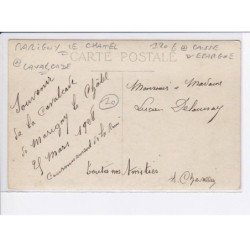 MARIGNY LE CHATEL
@ CAVALCADE
1206 @ CAISSE
D EPARGNE
CARTE POSTALE
Souvenir
de la Cavalcade
de Marigny le Châtel
25 Mars 1908
Couronnement de la
20
Monsieur & Madame
Lucien Delaunay
toutes nos Amitiés